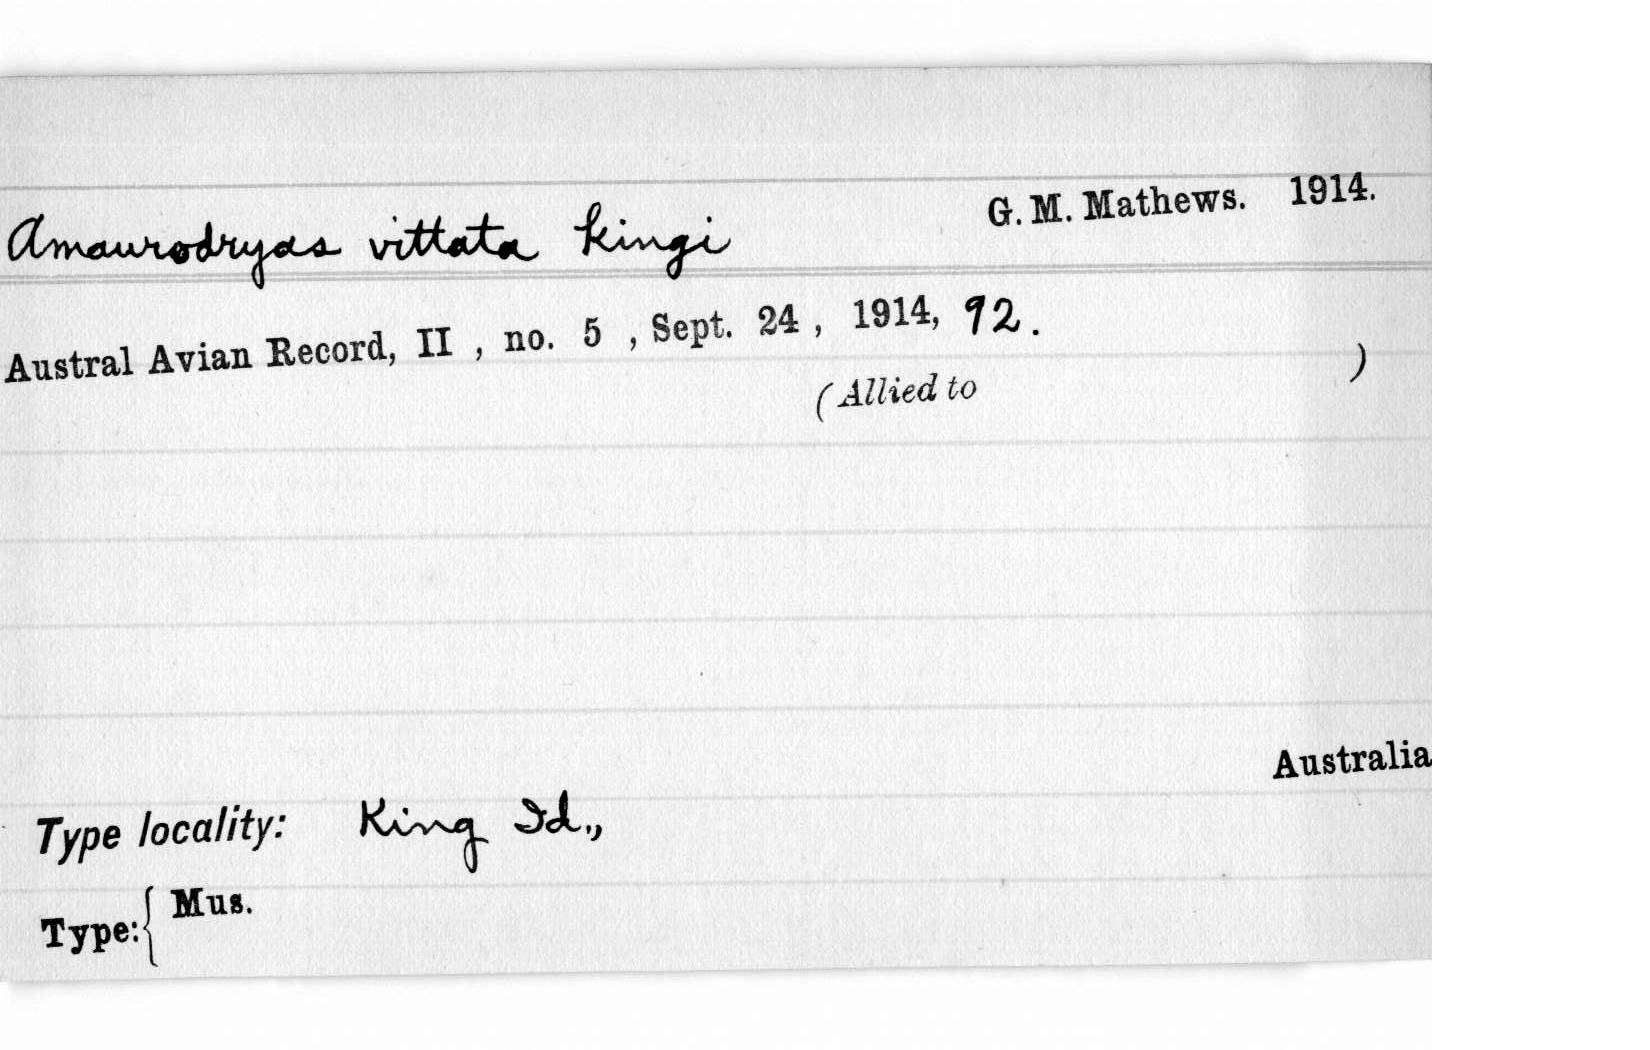 Amaurodryas vittata kingi G. M. Mathews. 1914.
Austral Avian Record, II , no. 5 , Sept. 24 , 1914, 92.
(Allied to )
Australia
Type locality: King Id.,
Type: { Mus.